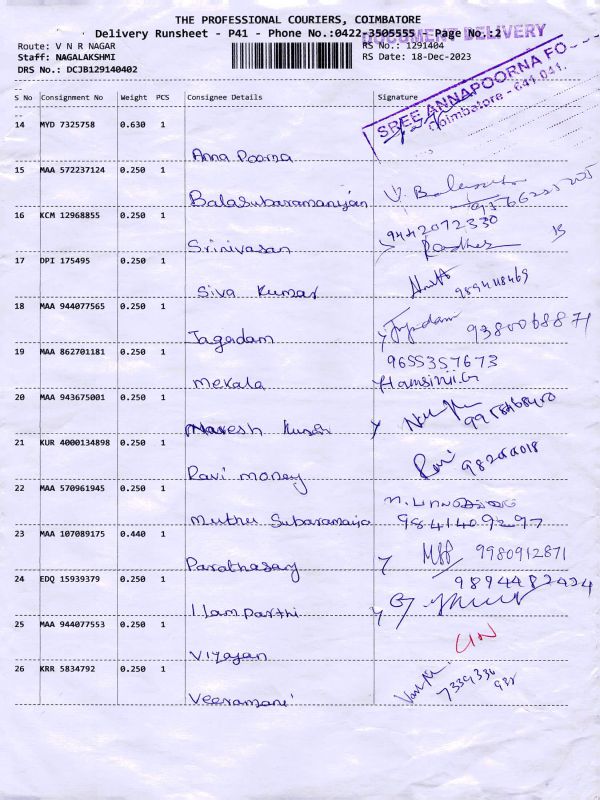 THE PROFESSIONAL COURIERS, COIMBATORE
Delivery Runsheet - P41 - Phone No.:0422-3505555 - Page No.:2
DOCUMENT DELIVERY
Route: V N R NAGAR
RS No.: 1291404
Staff: NAGALAKSHMI
RS Date: 18-Dec-2023
DRS No.: DCJB129140402
SREE ANNAPOORNA FO
Coimbatore - 641 041.
S No Consignment No Weight PCS Consignee Details Signature
14 MYD 7325758 0.630 1
Anna Poorna
15 MAA 572237124 0.250 1
Balasubaramaniyan
16 KCM 12968855 0.250 1
9442072330
Srinivasan
17 DPI 175495 0.250 1
Siva Kumar
18 MAA 944077565 0.250 1
Jagadam 9380068871
19 MAA 862701181 0.250 1
9655357673
Mekala Hamsinii.G
20 MAA 943675001 0.250 1
Naresh Kumar
21 KUR 4000134898 0.250 1
Ravi money
22 MAA 570961945 0.250 1
Muthu Subaramaniya 9841409297
23 MAA 107089175 0.440 1
9980912871
Parathasay
24 EDQ 15939379 0.250 1
9894482434
Ilam parthi
25 MAA 944077553 0.250 1
Viyajan
26 KRR 5834792 0.250 1
Veeramani